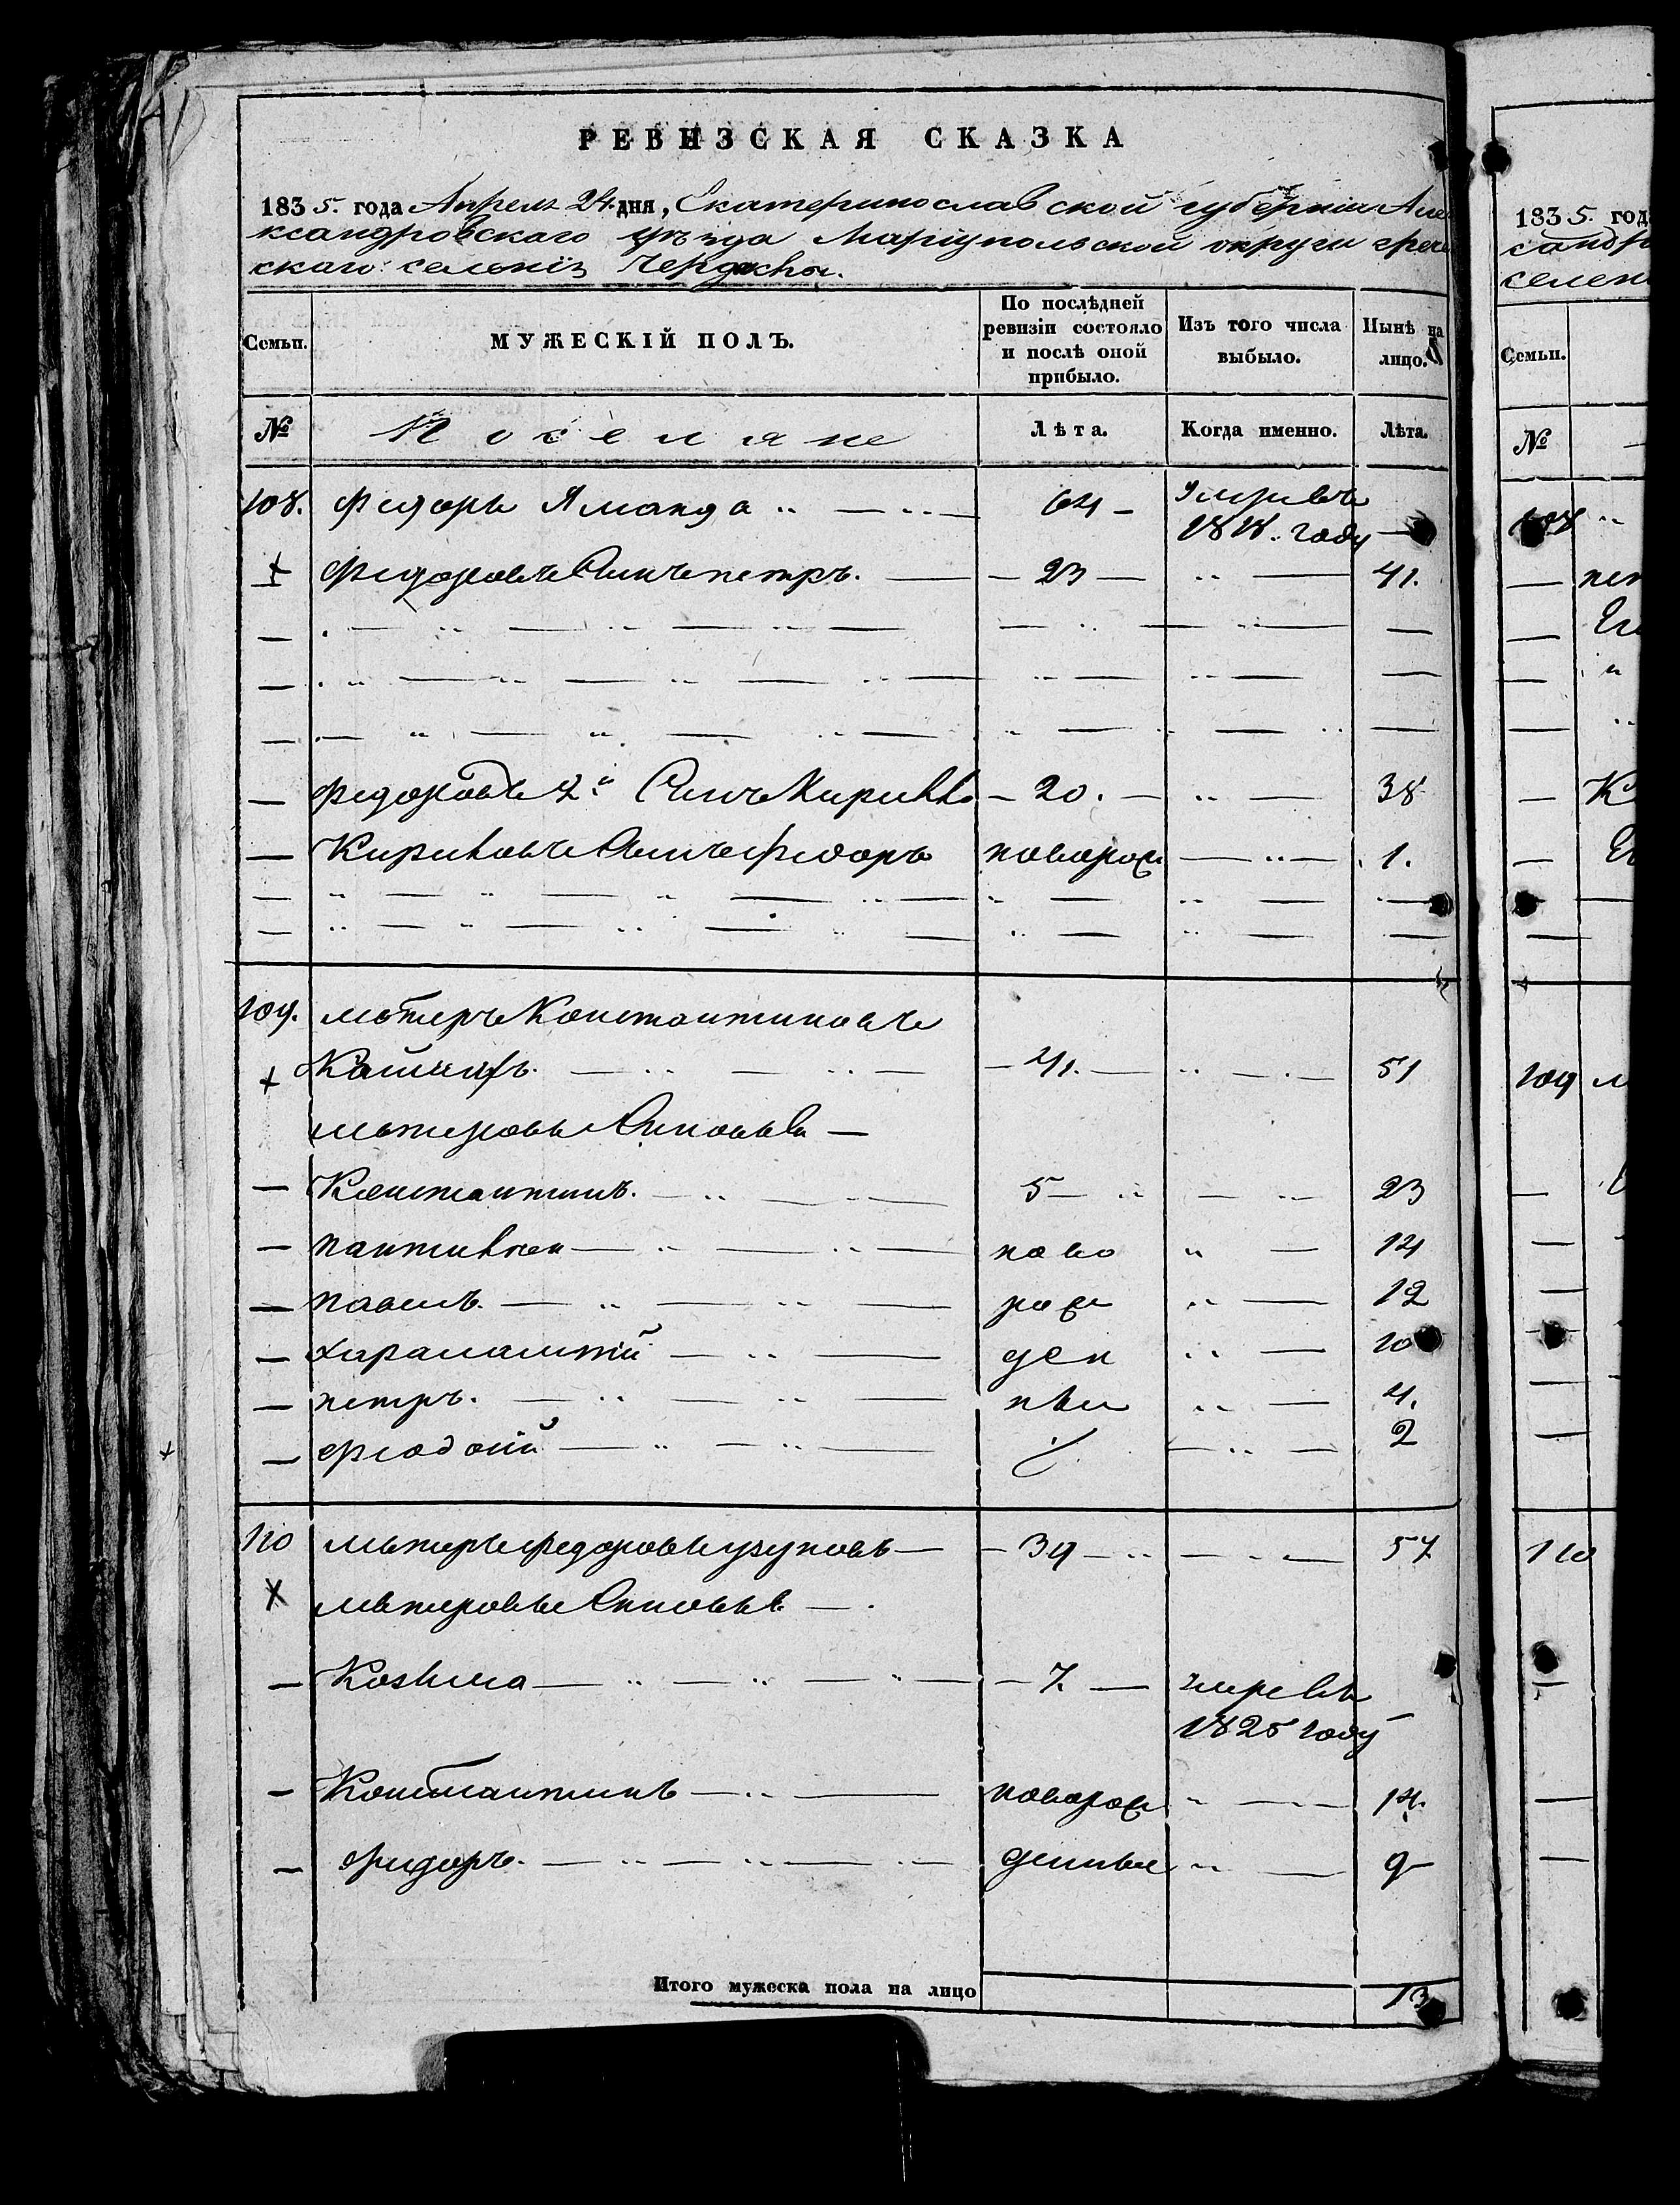 РЕВИЗСКАЯ СКАЗКА
1835. года Апреля 24. дня, Екатеринославской губерніи Але
ксандровскаго уѣзда Маріупольской округи грече
скаго селенія Чердаклы.
Семьи. МУЖЕСКІЙ ПОЛЪ. По послѣдней ревизіи состояло и послѣ оной прибыло. Изъ того числа выбыло. Нынѣ на лицо.
№ Поселяне Лѣта. Когда именно. Лѣта.
108. Федоръ Яманда 64 умре въ
1818. году
Федоровъ Сынъ петръ. 23 41.
Федоровъ 2й Сынъ Кирилъ 20. 38
Кириловъ Сынъ федоръ новорож 1.
109. Константиновъ
41. 51
Сыновья
Константинъ. 5 23
пантилеи ново 14
павелъ. рож 12
харалампій ден 10
петръ. ные 4.
2
110 федоровъ узуновъ 39 57
Сыновья
Козьма 7. умре въ
1825 году
Константинъ новорож 14.
федоръ. денные 9
Итого мужеска пола на лицо 13
1835. год
сандр
селен
Семьи.
№
108
пет
К
109
110